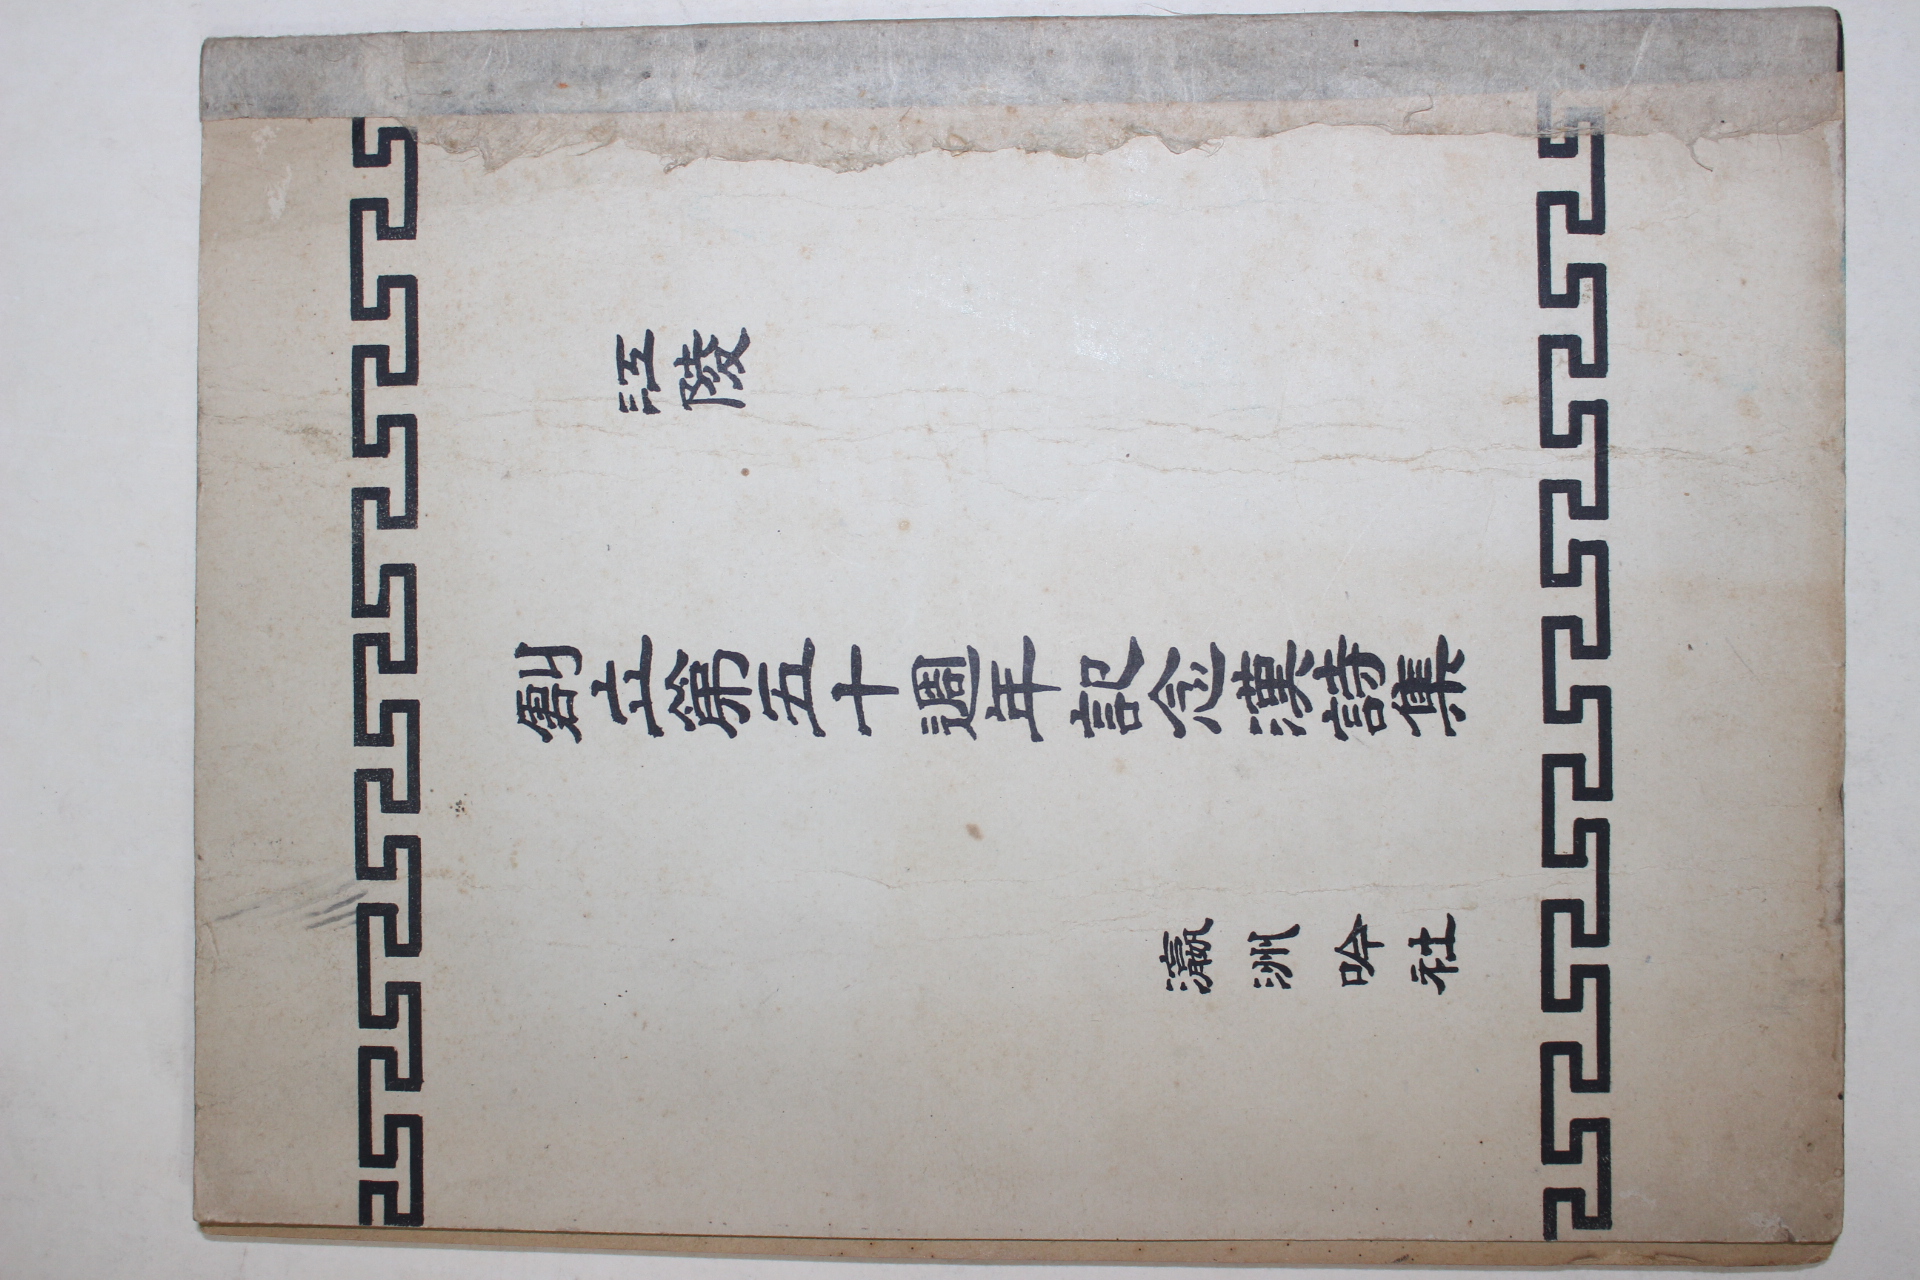 江陵
創立第五十週年記念漢詩集
瀛洲吟社